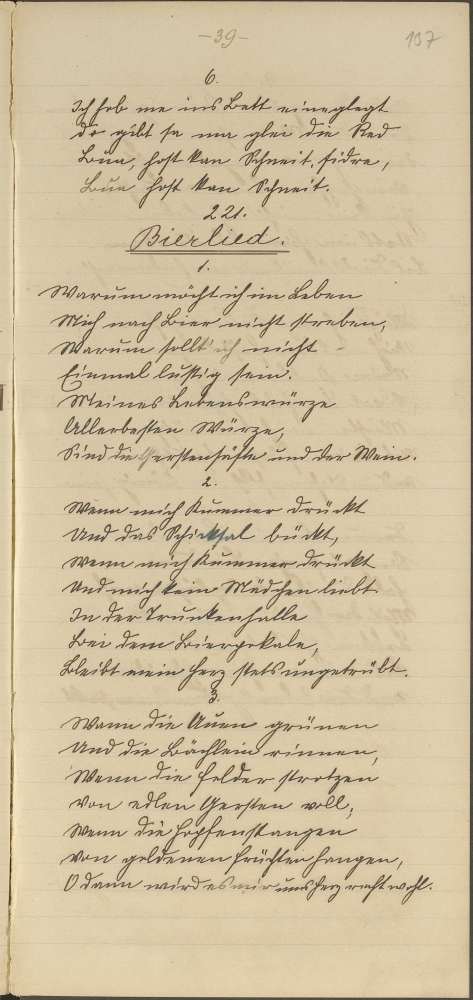 -39-
137
6.
Ich hob me ins Bett eineglegt
do gibt sa ma glei die Red
Bua, host kan Schneit, sidre,
Bua host kan Schneit.
221.
Bierlied.
1.
Warum möcht ich im Leben
Mich nach Bier nicht streben,
Warum sollt ich nicht
Einmal lustig sein.
Meines Lebenswürze
Allerbesten Würze,
Sind die Gerstensäfte und der Wein.
2.
Wenn mich Kummer drückt
Und das Schicksal bückt,
Wenn mich Kummer drückt
Und mich kein Mädchen liebt
In der Trunkenhalle
Bei dem Bierpokale,
Bleibt mein Herz stets ungetrübt.
3.
Wann die Auen grünen
Und die Bächlein rinnen,
Wenn die Felder strotzen
Von edlen Gersten voll,
Wenn die Hopfenstangen
Von goldenen Früchten hangen,
O dann wird es mir ums Herz recht wohl.